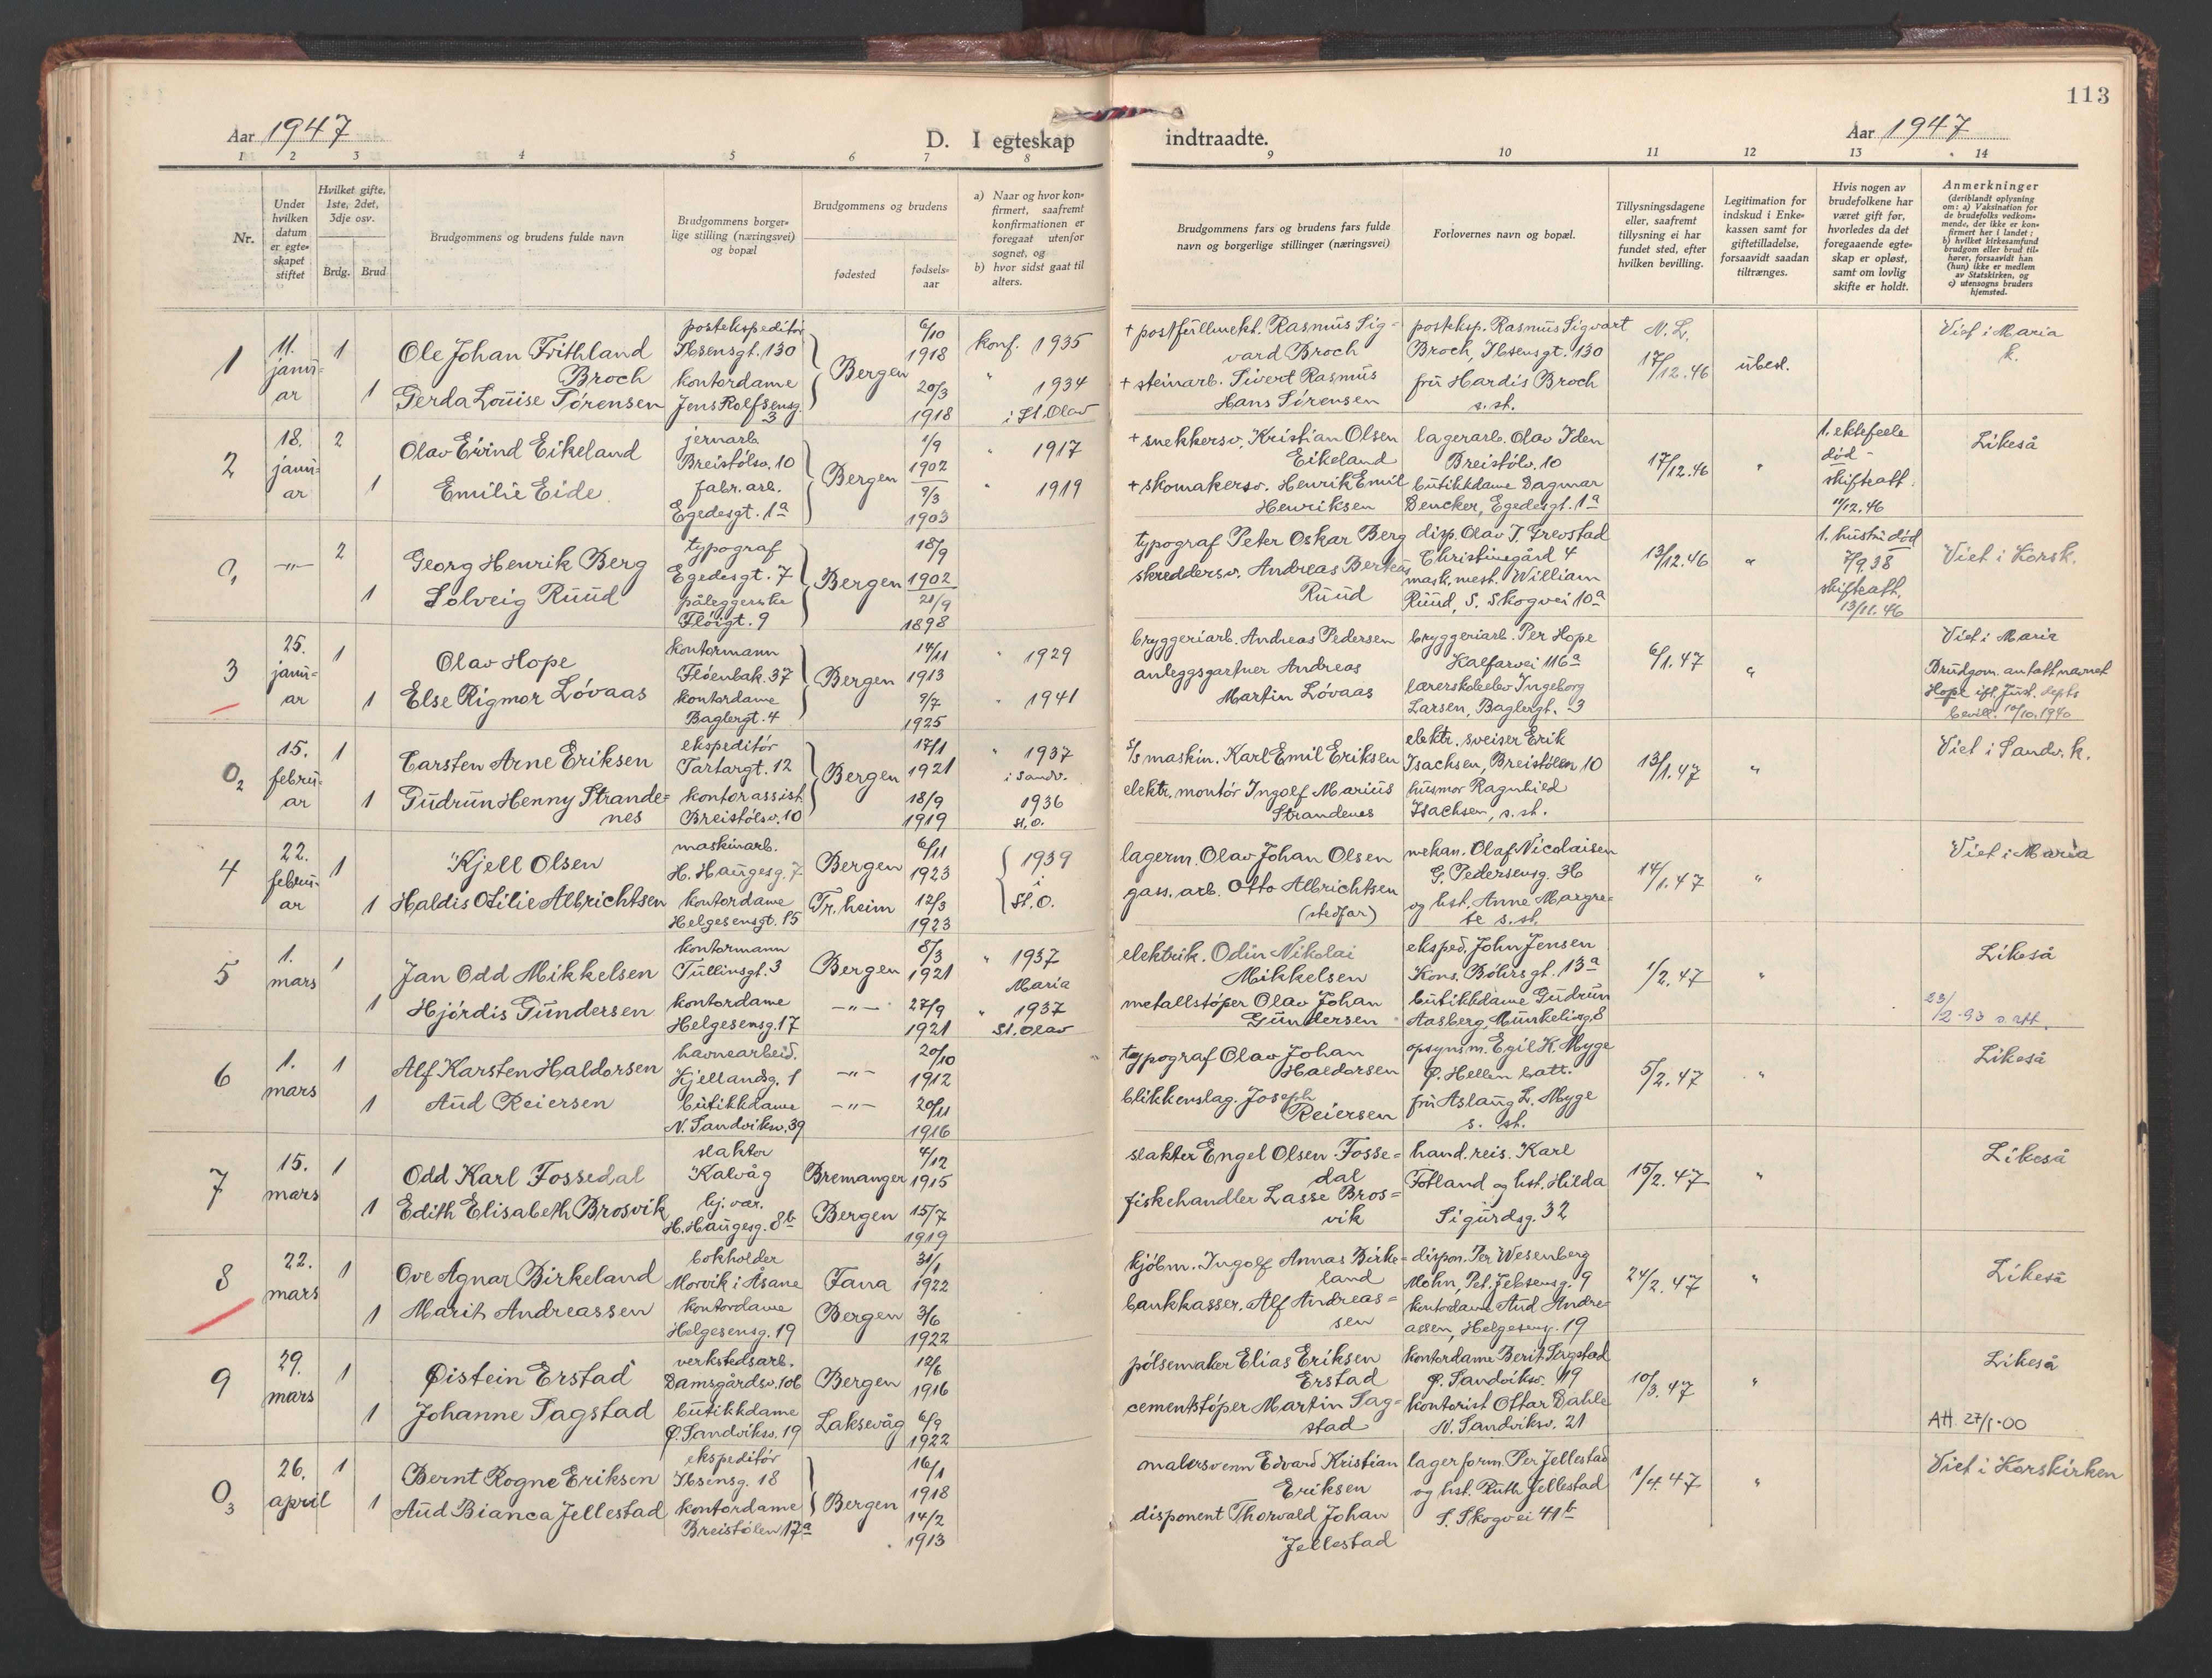 113
Aar 1947
D. I egteskap indtraadte.
Aar 1947
1 2 3 4 5 6 7 8 9 10 11 12 13 14
Nr.
Under hvilken datum er egteskapet stiftet
Hvilket gifte, 1ste, 2det, 3dje osv.
Brdg. Brud
Brudgommens og brudens fulde navn
Brudgommens borgerlige stilling (næringsvei) og bopæl
Brudgommens og brudens
fødested
fødselsaar
a) Naar og hvor konfirmert, saafremt konfirmationen er foregaat utenfor sognet, og
b) hvor sidst gaat til alters.
Brudgommens fars og brudens fars fulde navn og borgerlige stillinger (næringsvei)
Forlovernes navn og bopæl.
Tillysningsdagene eller, saafremt tillysning ei har fundet sted, efter hvilken bevilling.
Legitimation for indskud i Enkekassen samt for giftetilladelse, forsaavidt saadan tiltrænges.
Hvis nogen av brudefolkene har været gift før, hvorledes da det foregaaende egteskap er opløst, samt om lovlig skifte er holdt.
Anmerkninger
(deriblandt oplysning om: a) Vaksination for de brudefolks vedkommende, der ikke er konfirmert her i landet; b) hvilket kirkesamfund brudgom eller brud tilhører, forsaavidt han (hun) ikke er medlem av Statskirken, og c) utensogns bruders hjemsted.
1
11. januar
1
Ole Johan Frithland Broch
postekspeditør
Ibsensgt. 130
Bergen
6/10 1918
konf. 1935
+ postfullmekt. Rasmus Sigvard Broch
posteksp. Rasmus Sigvart Broch, Ibsensgt. 130
N. L.
17/12.46
ubest.
Viet i Maria k.
1
Gerda Louise Sørensen
kontordame
Jens Rolfsensg. 3
20/3 1918
" 1934 i St. Olav
+ steinarb. Sivert Rasmus Hans Sørensen
fru Hardis Broch s. st.
2
18. januar
2
Olav Eivind Eikeland
jernarb.
Breistølsv. 10
Bergen
1/9 1902
" 1917
+ snekkersv. Kristian Olsen Eikeland
lagerarb. Olav Iden
Breistølv. 10
17/12.46
"
1. ektefelle død - skifteatt. 11/12.46
Likeså
1
Emilie Eide
fabr. arb.
Egedesgt. 1a
9/3 1903
" 1919
+ skomakersv. Henrik Emil Henriksen
butikkdame Dagmar Dencker, Egedesgt. 1a
0 1
—"—
2
Georg Henrik Berg
typograf
Egedesgt. 7
Bergen
18/9 1902
typograf Peter Oskar Berg
disp. Olav J. Grevstad
Christinegård 4
13/12.46
"
1. hustru død 7/9.38 skifteatt. 13/11.46
Viet i Korsk.
1
Solveig Ruud
påleggerske
Fløigt. 9
21/9 1898
skreddersv. Andreas Berteus Ruud
mask. mest. William Ruud, S. Skogvei 10a
3
25. januar
1
Olav Hope
kontormann
Fløenbak. 37
Bergen
14/11 1913
" 1929
bryggeriarb. Andreas Pedersen
bryggeriarb. Per Hope
Kalfarvei 116a
6/1.47
"
Viet i Maria
Brudgom. antatt navnet Hope ifl. Just. depts bevill. 10/10.1940
1
Else Rigmor Løvaas
kontordame
Baglergt. 4
9/7 1925
" 1941
anleggsgartner Andreas Martin Løvaas
lærerskoleelev Ingeborg Larsen, Baglergt. 3
0 2
15. februar
1
Carsten Arne Eriksen
ekspeditør
Tartargt. 12
Bergen
17/1 1921
" 1937 i Sandv.
s/s maskin. Karl Emil Eriksen
elektr. sveiser Erik Isachsen, Breistølen 10
13/1.47
"
Viet i Sandv. k.
1
Gudrun Henny Strandenes
kontorassist.
Breistølsv. 10
18/9 1919
1936 St. O.
elektr. montør Ingolf Marius Strandenes
husmor Ragnhild Isachsen, s. st.
4
22. februar
1
Kjell Olsen
maskinarb.
H. Haugesg. 7
Bergen
6/11 1923
1939 i St. O.
lagerm. Olav Johan Olsen
mekan. Olaf Nicolaisen
G. Pedersensg. 36
14/1.47
"
Viet i Maria
1
Haldis Otilie Albrichtsen
kontordame
Helgesensgt. 15
Tr.heim
12/3 1923
gass. arb. Otto Albrichtsen (stedfar)
og hst. Anne Margrete s. st.
5
1. mars
1
Jan Odd Mikkelsen
kontormann
Tullinsgt. 3
Bergen
8/3 1921
" 1937 Maria
elektrik. Odin Nikolai Mikkelsen
eksped. John Jensen
Kons. Bøhrsgt. 13a
1/2.47
"
Likeså
1
Hjørdis Gundersen
kontordame
Helgesensg. 17
—"—
27/9 1921
" 1937 St. Olav
metallstøper Olav Johan Gundersen
butikkdame Gudrun Aasberg, Munkelivsg. 8
23/2-93 v. att.
6
1. mars
1
Alf Karsten Haldorsen
havnearbeid.
Kjellandsg. 1
—"—
20/10 1912
typograf Olav Johan Haldorsen
opsynsm. Egil K. Myge
Ø. Hellen batt.
5/2.47
"
Likeså
1
Aud Reiersen
butikkdame
N. Sandviksv. 39
—"—
20/11 1916
blikkenslag. Joseph Reiersen
fru Aslaug L. Myge s. st.
7
15. mars
1
Odd Karl Fossedal
slakter
Kalvåg
Bremanger
4/12 1915
slakter Engel Olsen Fossedal
hand. reis. Karl Fotland og hst. Hilda
Sigurdsg. 32
15/2.47
"
Likeså
1
Edith Elisabeth Brosvik
hj. vær.
H. Haugesg. 8b
Bergen
15/7 1919
fiskehandler Lasse Brosvik
8
22. mars
1
Ove Agnar Birkeland
bokholder
Morvik i Åsane
Fana
31/1 1922
kjøbm. Ingolf Annas Birkeland
dispon. Per Wesenberg Mohn, Pet. Jebsensg. 9
24/2.47
"
Likeså
1
Marit Andreassen
kontordame
Helgesensg. 19
Bergen
3/6 1922
bankkasser. Alf Andreassen
kontordame Aud Andreassen, Helgesensg. 19
9
29. mars
1
Øistein Erstad
verkstedsarb.
Damsgårdsv. 106
Bergen
12/6 1916
pølsemaker Elias Eriksen Erstad
kontordame Berit Sagstad
Ø. Sandviksv. 19
10/3.47
"
Likeså
1
Johanne Sagstad
butikkdame
Ø. Sandviksv. 19
Laksevåg
6/9 1922
cementstøper Martin Sagstad
kontorist Ottar Dahle
N. Sandviksv. 21
Att. 27/1-00
0 3
26. april
1
Bernt Rogne Eriksen
ekspeditør
Ibsensg. 18
Bergen
16/1 1918
malersvenn Edvard Kristian Eriksen
lagerform. Per Jellestad
og hst. Ruth Jellestad
S. Skogvei 41b
1/4.47
"
Viet i Korskirken
1
Aud Bianca Jellestad
kontordame
Breistølen 17a
14/2 1913
disponent Thorvald Johan Jellestad